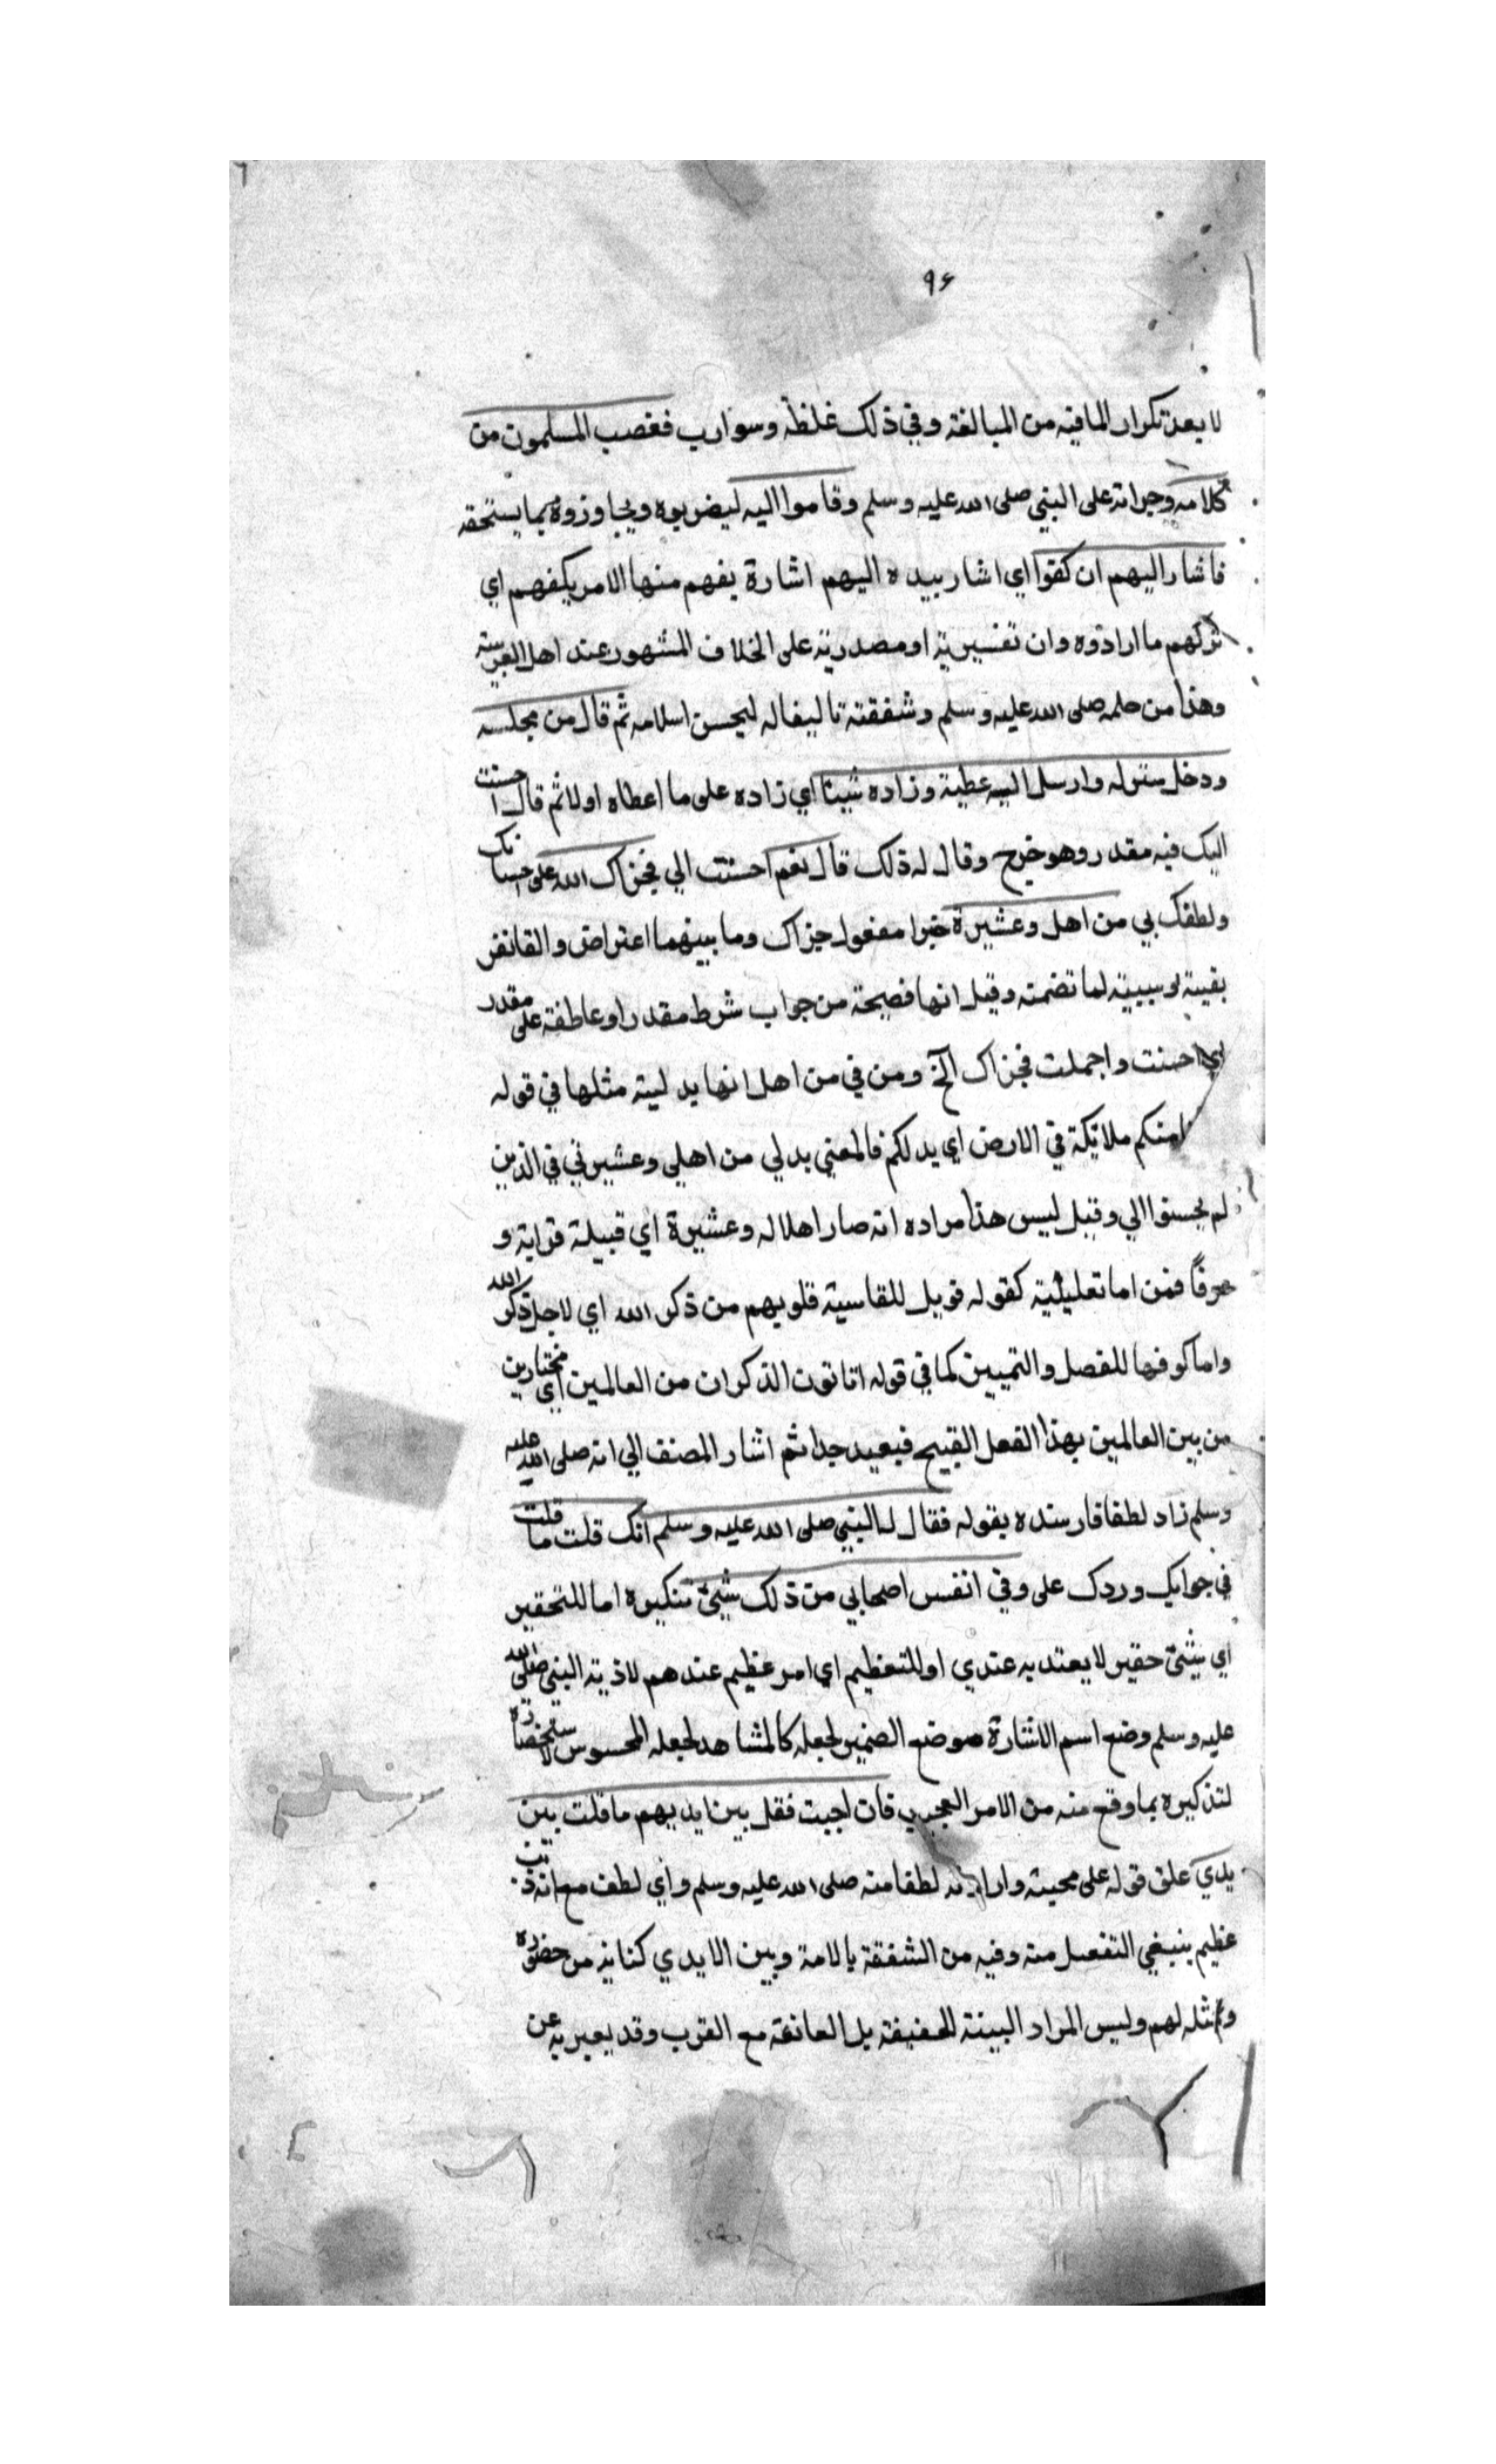 ٩٤
لا يعد تكرار المافيه من المبالغة وفي ذلك غلظة وسوادب فغضب المسلمون من
كلامه وجراته على النبي صلى الله عليه وسلم وقاموا اليه ليضربوه ويجاوزوه بما يستحقه
فاشار اليهم ان كفوا اي اشار بيده اليهم اشارة يفهم منها الامر بكفهم اي
تركهم ما ارادوه وان تفسيرية او مصدرية على الخلاف المشهور عند اهل العربية
وهذا من حلمه صلى الله عليه وسلم وشفقته تاليفا له ليحسن اسلامه ثم قال من مجلسه
ودخل منزله وارسل اليه عطية وزاده شيئا اي زاده على ما اعطاه اولا ثم قال احسنت
اليك فيه مقدر وهو خرج وقال له ذلك قال نعم احسنت الي فجزاك الله على احسانك
ولطفك بي من اهل وعشيرة خيرا مفعول جزاك وما بينهما اعتراض والقا
لما تضمنه وقيل انها فصيحة من جواب شرط مقدر او عاطفة على مقدر
اي احسنت واجملت فجزاك الخ ومن في من اهل انها بدلية مثلها في قوله
منكم ملائكة في الارض اي بدلكم فالمعني بدلي من اهلي وعشيرتي في الذين
لم يحسنوا الي وقيل ليس هذا مراده انه صار اهلا له وعشيرة اي قبيلة قرابة و
فمن اما تعليلية كقوله فويل للقاسية قلوبهم من ذكر الله اي لاجل ذكر الله
واما كوفها للفصل والتمييز كما في قوله اتاتون الذكران من العالمين اي مختارين
من بين العالمين بهذا الفعل القبيح فبعيد جدا ثم اشار المصنف الي انه صلى الله عليه
وسلم زاد لطفا فارشده بقوله فقال له النبي صلى الله عليه وسلم انك قلت ما قلت
في جوابك وردك على وفي انفس اصحابي من ذلك شيئ تنكيره اما للتحقير
اي شيئ حقير لا يعتد به عندي او للتعظيم اي امر عظيم عندهم لاذية النبي صلى الله
عليه وسلم وضع اسم الاشارة موضع الضمير لجعله كالمشاهد لجعله المحسوس لاستحضاره
لتذكيره بما وقع منه من الامر العجيب فان اجبت فقل بين ايديهم ما قلت بين
يدي علق قوله على محبته وارادته لطفا منه صلى الله عليه وسلم واي لطف مع انه ذنب
عظيم ينبغي التفصل منه وفيه من الشفقة بالامة وبين الايدي كناية من حضوره
وتمثله لهم وليس المراد البينة الحقيقة بل العانقة مع القرب وقد يعبر به عن